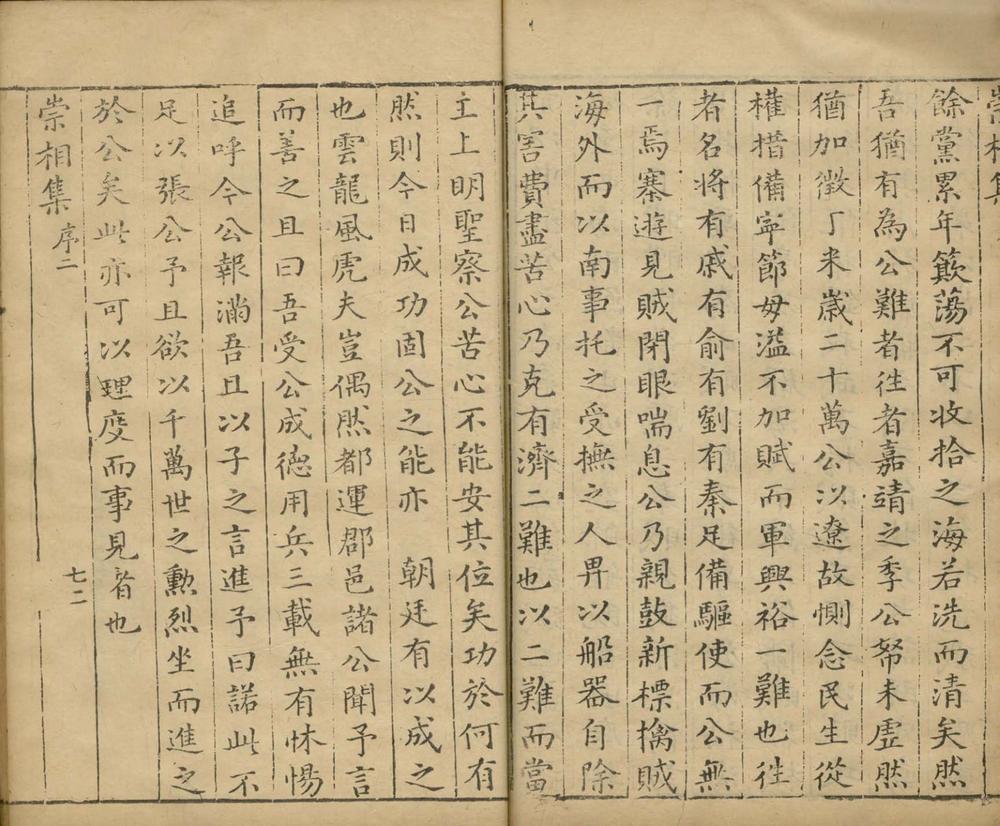 崇相集
餘黨累年籨蕩不可收拾之海若洗而清矣然
吾猶有為公難者徃者嘉靖之季公帑未虛然
猶加徵丁米歲二十萬公以遼故惻念民生從
權措備寧節毋溢不加賦而軍興裕一難也徃
者名將有戚有俞有劉有秦足備驅使而公無
一焉寨遊見賊閉眼喘息公乃親鼓新標擒賊
海外而以南事托之受撫之人畀以船器自除
其害費盡苦心乃克有濟二難也以二難而當
主上明聖察公苦心不能安其位矣功於何有
然則今日成功固公之能亦 朝廷有以成之
也雲龍風虎夫豈偶然都運郡邑諸公聞予言
而善之且曰吾受公成德用兵三載無有怵惕
追呼今公報滿吾且以子之言進予曰諾此不
足以張公予且欲以千萬世之勲烈坐而進之
於公矣此亦可以理度而事見者也
崇相集 序二 七二